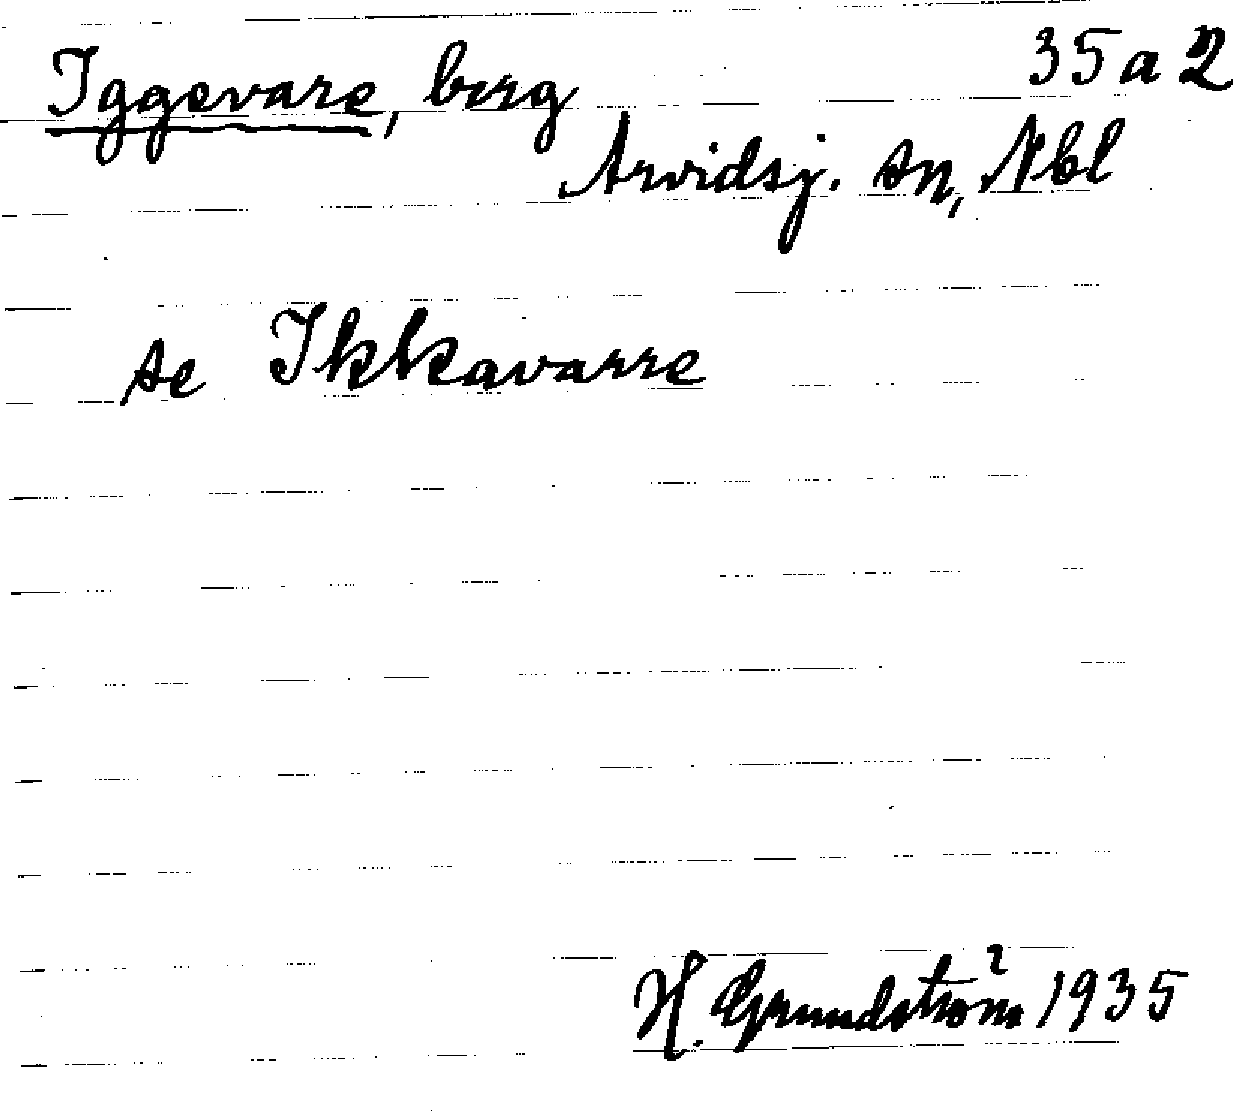 Iggevare, berg 35a2
Arvidsj. sn, Nbl
se Ikkavarre
H. Grundström 1935